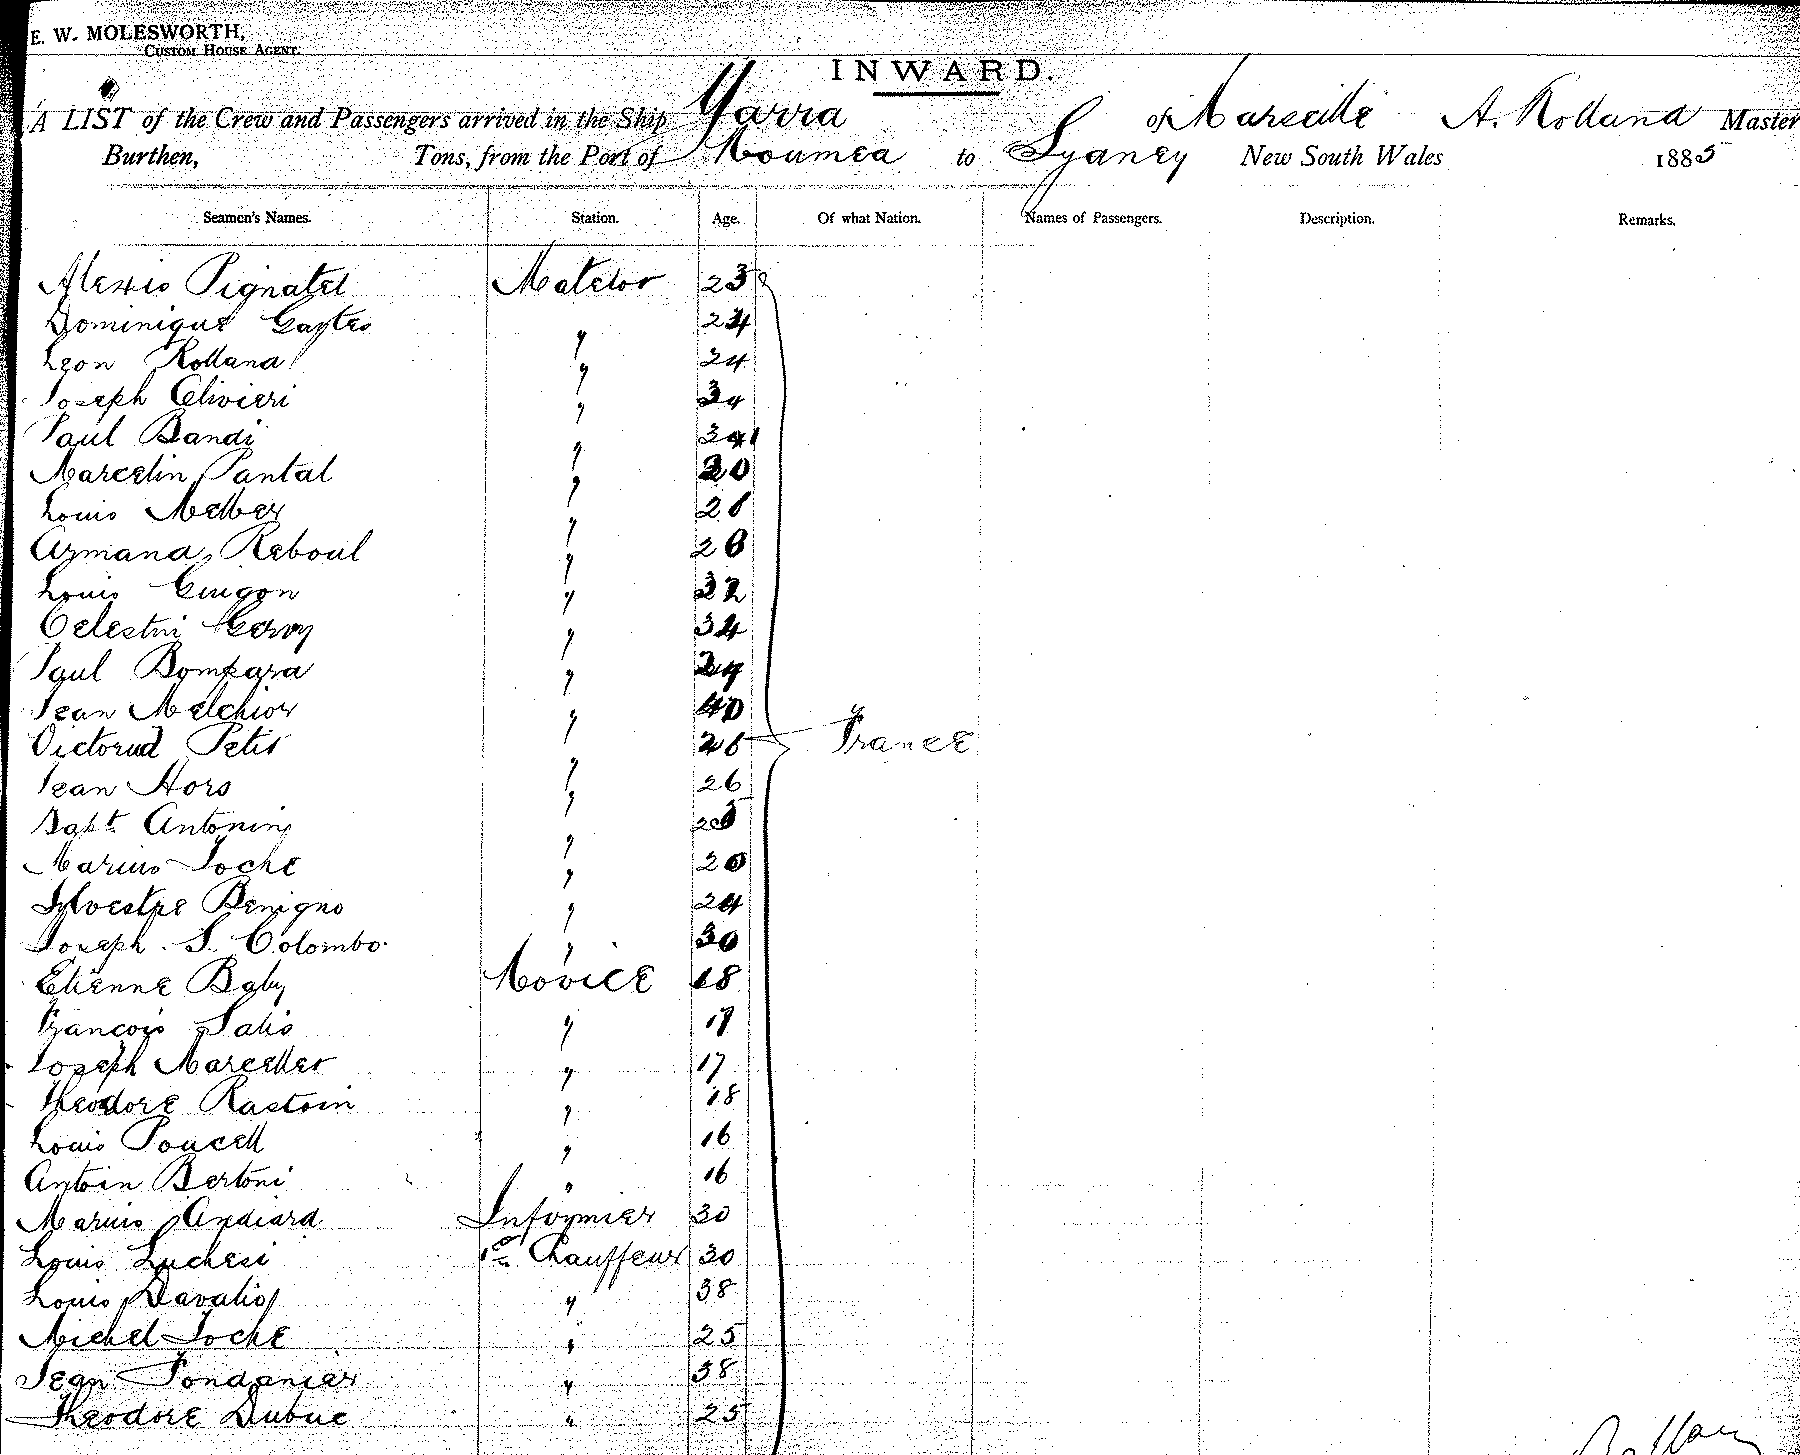 E. W. MOLESWORTH,
CUSTOM HOUSE AGENT.
INWARD.
A LIST of the Crew and Passengers arrived in the Ship Yarra of Marseille A. Rolland Master
Burthen, Tons, from the Port of Noumea to Sydney New South Wales 1885
Seamen's Names. Station. Age. Of what Nation. Names of Passengers. Description. Remarks.
Alexis Pignatel Matelot 23
Dominique 24
Leon Rolland " 24
Joseph Olivieri " 34
Paul Bandi "
Marcelin Pantal " 20
Louis "
Armand Reboul " 28
Louis Guigon " 32
Celestin " 34
Paul Bompard "
Jean Melchior " 40
Petit " 26 France
Jean Hors " 26
Bapt. Antonini "
Marius Loche " 20
Sylvestre Benigno " 24
Joseph S. Colombo " 30
Etienne Baby Novice 18
Francois Salis " 17
Joseph " 17
Theodore Rastoin " 18
Louis Poucell " 16
Antoin Bertoni " 16
Marius Andiard Infirmier 30
Louis Luchesi 1er Chauffeur 30
Louis " 38
Michel Loche " 25
Jean " 38
Theodore Dubuc " 25